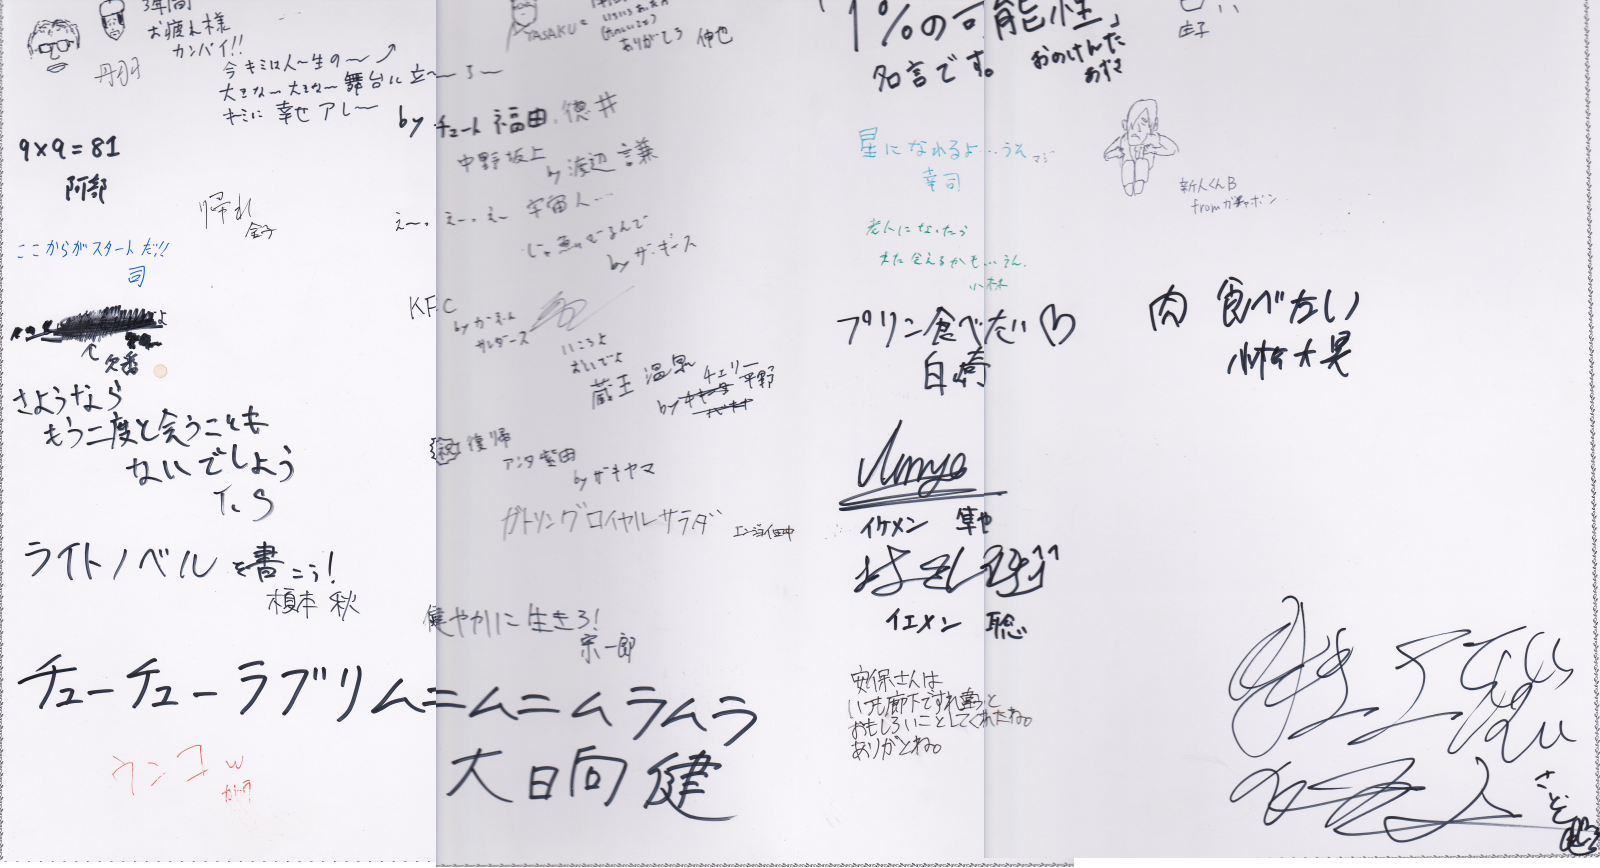 3年間
お疲れ様
カンパイ!!
丹羽
今キミは人〜生の〜
大きな〜大きな〜舞台に立〜〜る〜
キミに幸せアレ〜
by チュート 福田、徳井
9×9=81
阿部
帰れ
金子
ここからがスタートだ!!
司
欠番
さようなら
もう二度と会うことも
ないでしょう
T.S
ライトノベルを書こう!
榎本 秋
チューチューラブリムニムニムラムラ
大日向 健
ウンコw
YASAKU
ありがとう 伸也
中野坂上
by 渡辺 謙
え〜、え〜、え〜 宇宙人…
by ザ・ギース
KFC
by カーネル
サンダース
いころよ
おいでよ
蔵王温泉
by チェリー平野
祝 復帰
アンタ柴田
by ザキヤマ
ガトリングロイヤルサラダ
エンジョイ田中
健やかに生きろ!
宗一郎
1%の可能性」
名言です。
おのけんた
星になれるよ…うそ
マジ
幸司
老人になったら
また会えるかもしれん
小林
プリン食べたい
白崎
イケメン 隼也
イエメン 聡
安保さんは
いつも廊下ですれ違うと
おもしろいことしてくれたね。
ありがとね。
由子
新人くんB
fromガチャポン
肉 食べたい
小松大晃